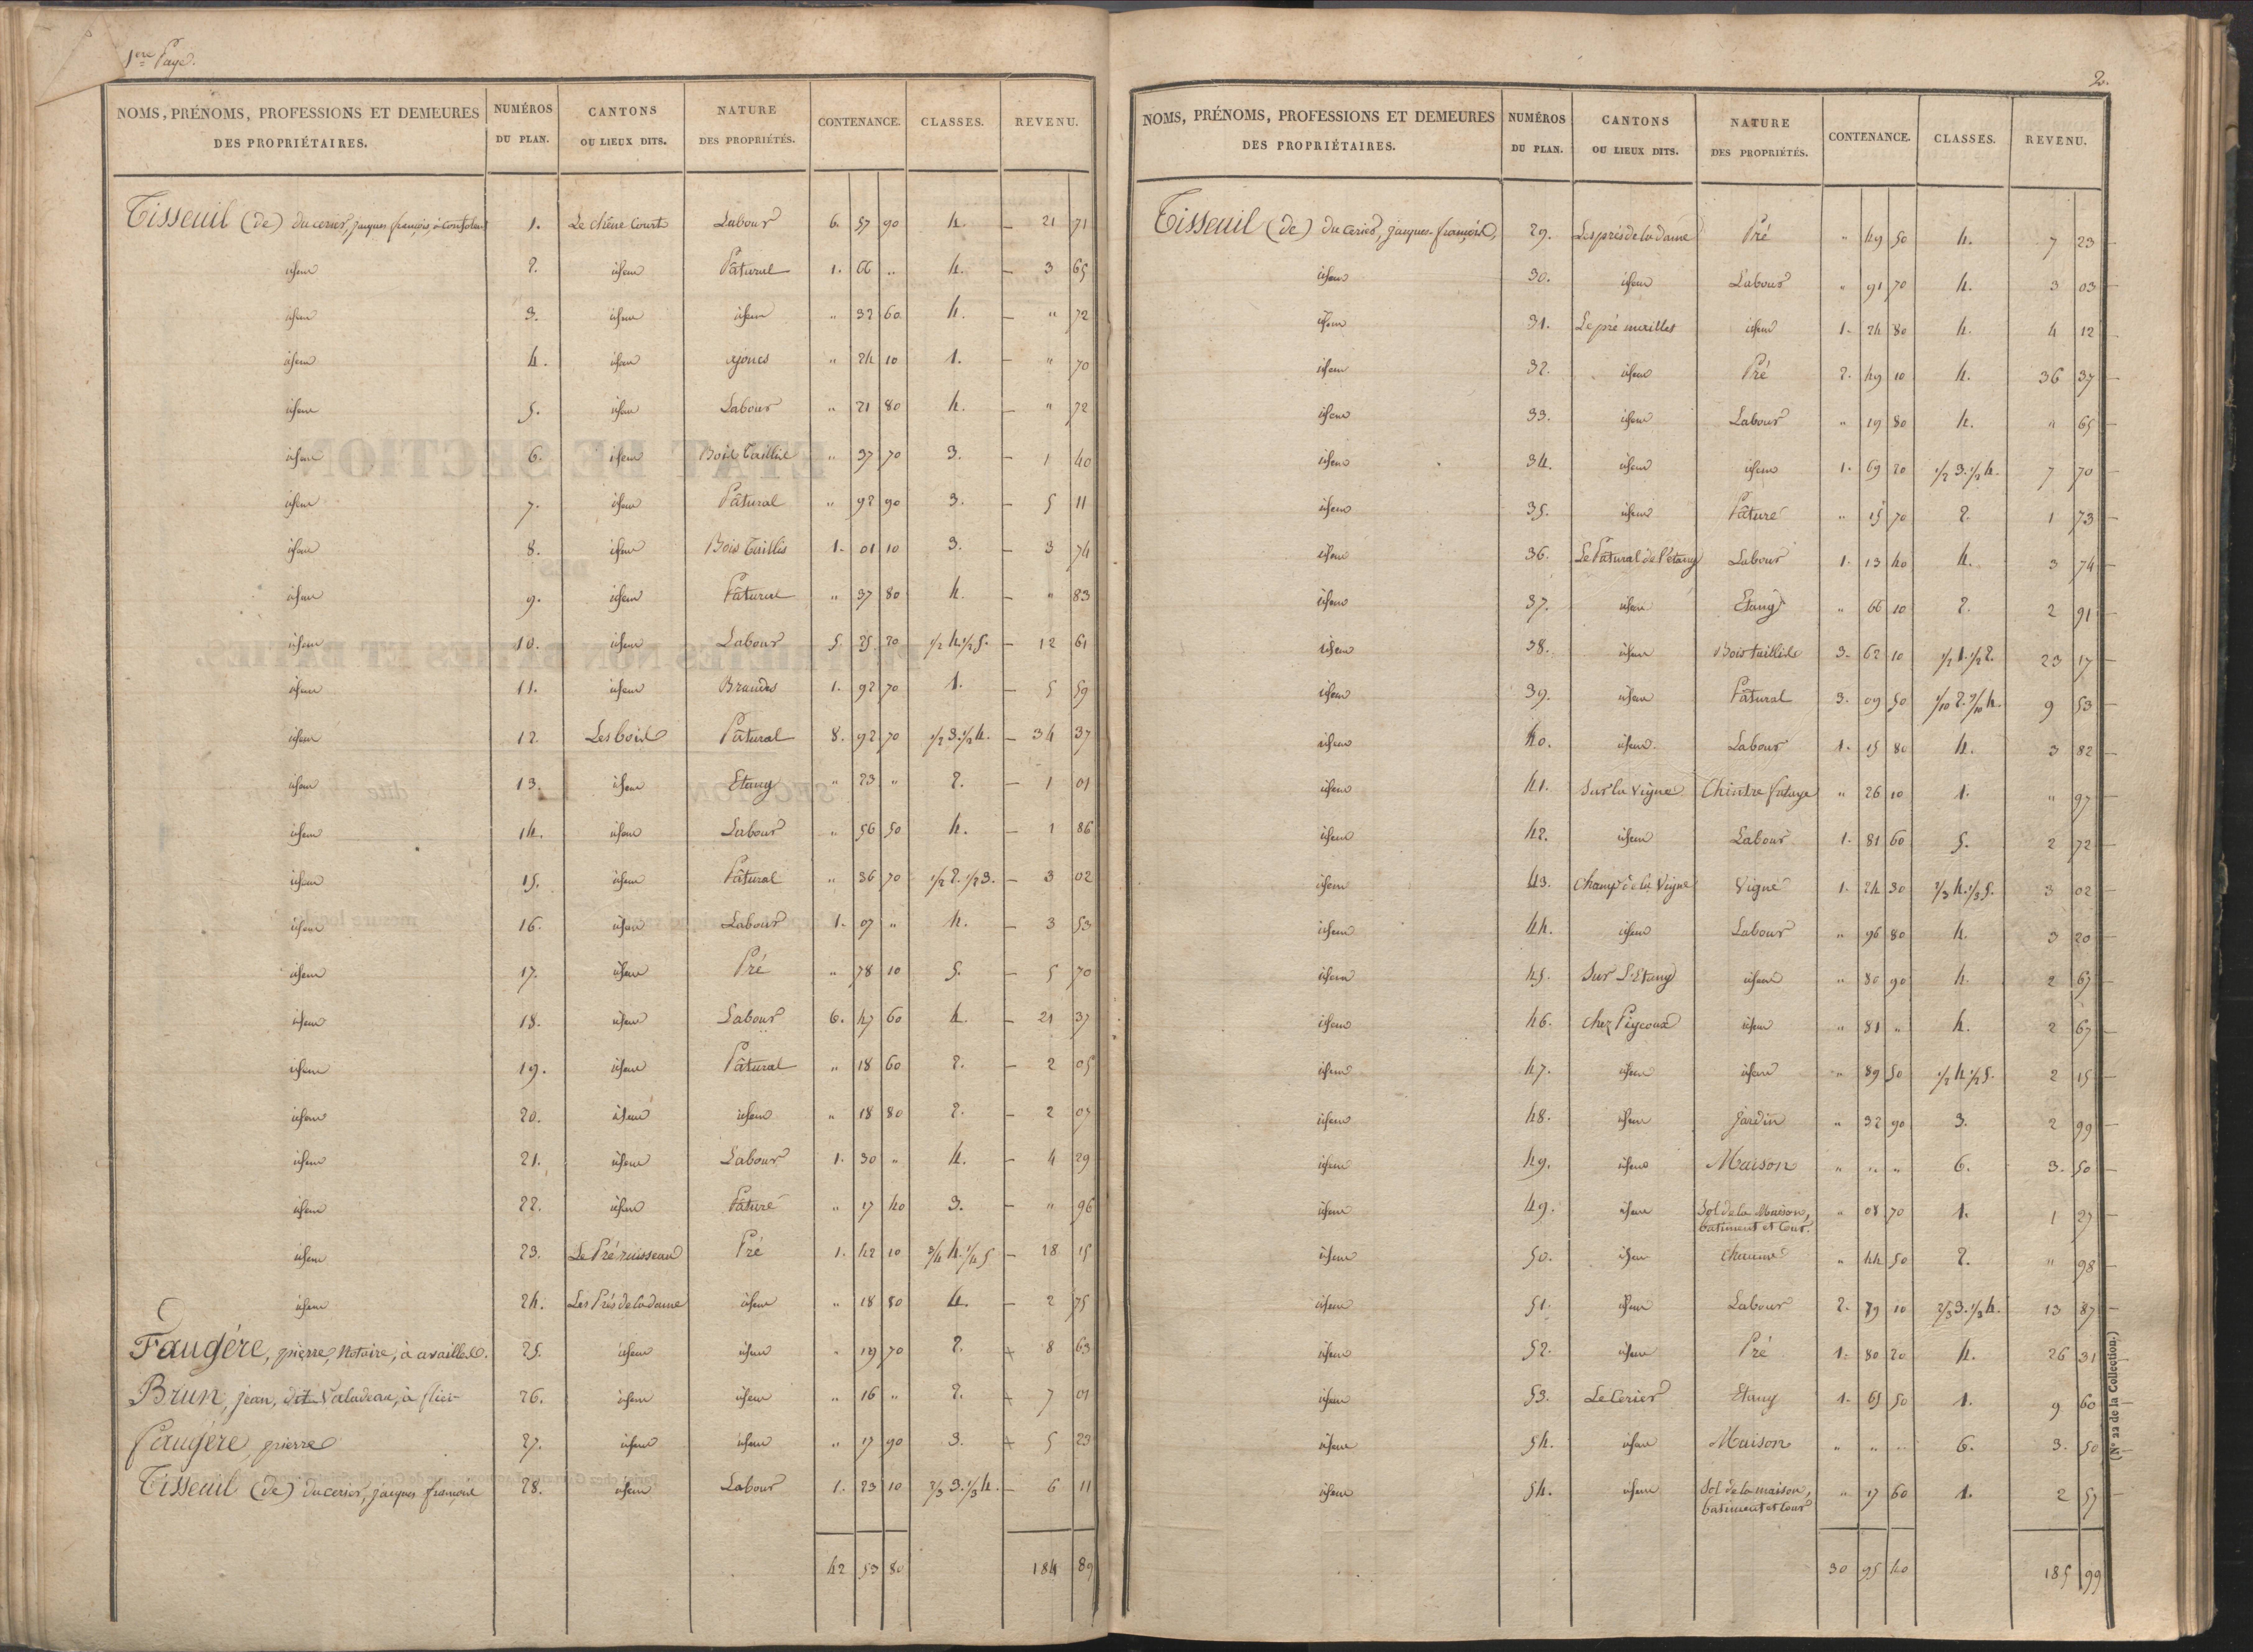 1ere Page.
NOMS, PRÉNOMS, PROFESSIONS ET DEMEURES DES PROPRIÉTAIRES. NUMÉROS DU PLAN. CANTONS OU LIEUX DITS. NATURE DES PROPRIÉTÉS. CONTENANCE. CLASSES. REVENU.
Tisseuil (de) du cerier, jacques françois, à Confolens 1. Le chêne Court Labour 6. 57 90 4. — 21 71
idem 2. idem Pâtural 1. 66 " 4. — 3 65
idem 3. idem idem " 32 60 4. — " 72
idem 4. idem ajoncs " 24 10 1. — " 70
idem 5. idem Labour " 21 80 4. — " 72
idem 6. idem Bois Taillis " 37 70 3. — 1 40
idem 7. idem Pâtural " 92 90 3. — 5 11
idem 8. idem Bois Taillis 1. 01 10 3. — 3 74
idem 9. idem Pâtural " 37 80 4. — " 83
idem 10. idem Labour 5. 25 20 1/2 4. 1/2 5. — 12 61
idem 11. idem Brandes 1. 92 70 1. — 5 59
idem 12. Les bois Pâtural 8. 92 70 1/2 3. 1/2 4. — 34 37
idem 13. idem Etang " 23 " 2. — 1 01
idem 14. idem Labour " 56 50 4. — 1 86
idem 15. idem Pâtural " 36 70 1/2 2. 1/2 3. — 3 02
idem 16. idem Labour 1. 07 " 4. — 3 53
idem 17. idem Pré " 78 10 5. — 5 70
idem 18. idem Labour 6. 47 60 4. — 21 37
idem 19. idem Pâtural " 18 60 2. — 2 05
idem 20. idem idem " 18 80 2. — 2 07
idem 21. idem Labour 1. 30 " 4. — 4 29
idem 22. idem Pâture " 17 40 3. — " 96
idem 23. Le Pré ruisseau Pré 1. 42 10 3/4 4. 1/4 5 — 18 15
idem 24. Les Prés de la dame idem " 18 80 4. — 2 75
Faugére, pierre, Notaire, à availles. 25. idem idem " 19 70 2. 8 63
Brun, jean, dit Valadeau, à 26. idem idem " 16 " 2. 7 01
faugére, pierre 27. idem idem " 17 90 3. 5 23
Tisseuil (de) du cerier, jacques françois 28. idem Labour 1. 23 10 2/3 3. 1/3 4. — 6 11
42 53 80 184 89
2.
NOMS, PRÉNOMS, PROFESSIONS ET DEMEURES DES PROPRIÉTAIRES. NUMÉROS DU PLAN. CANTONS OU LIEUX DITS. NATURE DES PROPRIÉTÉS. CONTENANCE. CLASSES. REVENU.
Tisseuil (de) du Cerier, jacques-françois, 29. Les prés de la dame Pré " 49 50 4. 7 23
idem 30. idem Labour " 91 70 4. 3 03
idem 31. Le pré merilles idem 1. 24 80 4. 4 12
idem 32. idem Pré 2. 49 10 4. 36 37
idem 33. idem Labour " 19 80 4. " 65
idem 34. idem idem 1. 69 20 1/2 3. 1/2 4. 7 70
idem 35. idem Pâture " 15 70 2. 1 73
idem 36. Le Pâtural de l'étang Labour 1. 13 40 4. 3 74
idem 37. idem Etang " 66 10 2. 2 91
idem 38. idem Bois taillis 3. 62 10 1/2 1. 1/2 2. 23 17
idem 39. idem Pâtural 3. 09 50 1/10 2. 9/10 4. 9 53
idem 40. idem. Labour 1. 15 80 4. 3 82
idem 41. Sur la vigne Chintre futaye " 26 10 1. " 97
idem 42. idem Labour 1. 81 60 5. 2 72
idem 43. Champ de la Vigne Vigne 1. 24 30 2/3 4. 1/3 5. 3 02
idem 44. idem Labour " 96 80 4. 3 20
idem 45. Sur L'Etang idem " 80 90 4. 2 67
idem 46. chez Peycoux idem " 81 " 4. 2 67
idem 47. idem idem " 89 50 1/2 4. 1/2 5. 2 15
idem 48. idem Jardin " 32 90 3. 2 99
idem 49. idem Maison " " " 6. 3. 50
idem 49. idem Sol de la Maison, batiment et Cour. " 08 70 1. 1 27
idem 50. idem Chaume " 44 50 2. " 98
idem 51. idem Labour 2. 79 10 2/3 3. 1/3 4. 13 87
idem 52. idem Pré 1. 80 20 4. 26 31
idem 53. Le Cerier Etang 1. 65 50 1. 9 60
idem 54. idem Maison " " " 6. 3. 50
idem 54. idem Sol de la maison, batiment et Cour " 17 60 1. 2 57
30 95 40 185 99
(N° 22 de la Collection.)